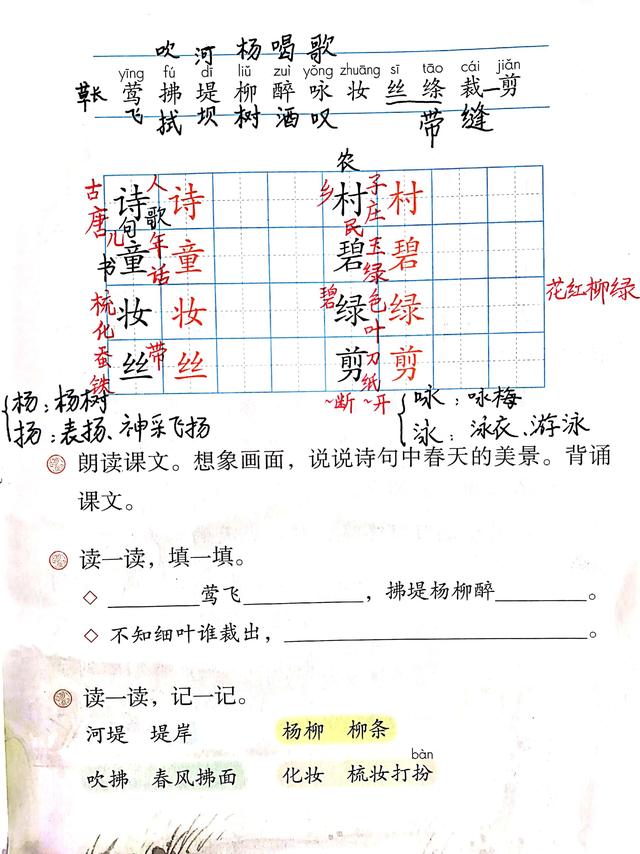 吹 河 杨 喝 歌
yīng fú dī liǔ zuì yǒng zhuāng sī tāo cái jiǎn
草长 莺 拂 堤 柳 醉 咏 妆 丝 绦 裁 剪
飞 拭 坝 树 酒 叹 带 缝
农
古唐 诗 人歌 诗 乡 村 子庄 村
儿 句 民
书 童 年话 童 碧 玉绿 碧
梳化 妆 妆 碧 绿 色叶 绿 花红柳绿
蚕铁 丝 带 丝 剪 刀纸 剪
~断 ~开
杨：杨树 咏：咏梅
扬：表扬、神采飞扬 泳：泳衣、游泳
朗读课文。想象画面，说说诗句中春天的美景。背诵
课文。
读一读，填一填。
◇ ________莺飞__________，拂堤杨柳醉________。
◇ 不知细叶谁裁出，____________________。
读一读，记一记。
河堤 堤岸 杨柳 柳条
bàn
吹拂 春风拂面 化妆 梳妆打扮